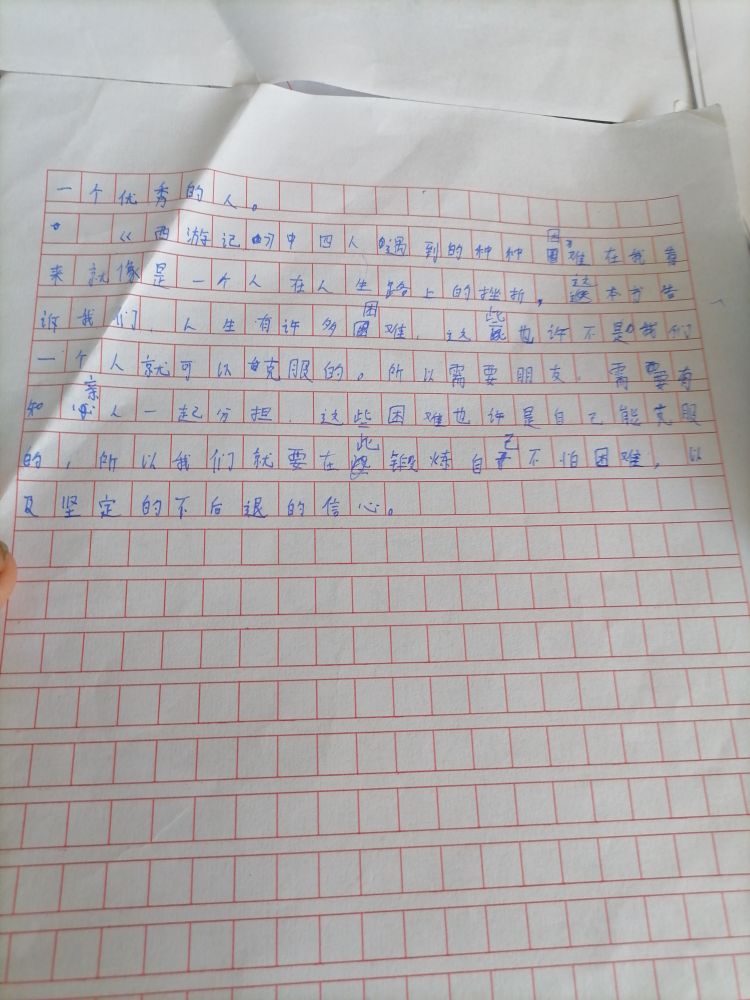 一个优秀的人。
《西游记》中四人遇到的种种困难在我看
来就像是一个人在人生路上的挫折，这本书告
诉我们，人生有许多困难，这些也许不是我们
一个人就可以克服的。所以需要朋友，需要有
知亲人一起分担，这些困难也许是自己能克服
的，所以我们就要在此锻炼自己不怕困难，以
及坚定的不后退的信心。